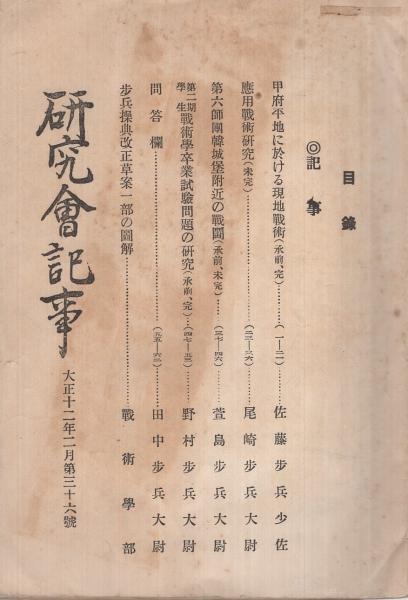 目錄
◎記事
甲府平地に於ける現地戰術(承前、完)…………(一—二一)…佐藤步兵少佐
應用戰術硏究(未完)…………(二二—三六)…尾崎步兵大尉
第六師團韓城堡附近の戰鬪(承前、未完)…(三七—四六)…萱島步兵大尉
第二期學生戰術學卒業試驗問題の硏究(承前、完)…(四七—五三)…野村步兵大尉
問答欄…………(五五—六三)…田中步兵大尉
步兵操典改正草案一部の圖解…………戰術學部
硏究會記事
大正十二年二月第三十六號